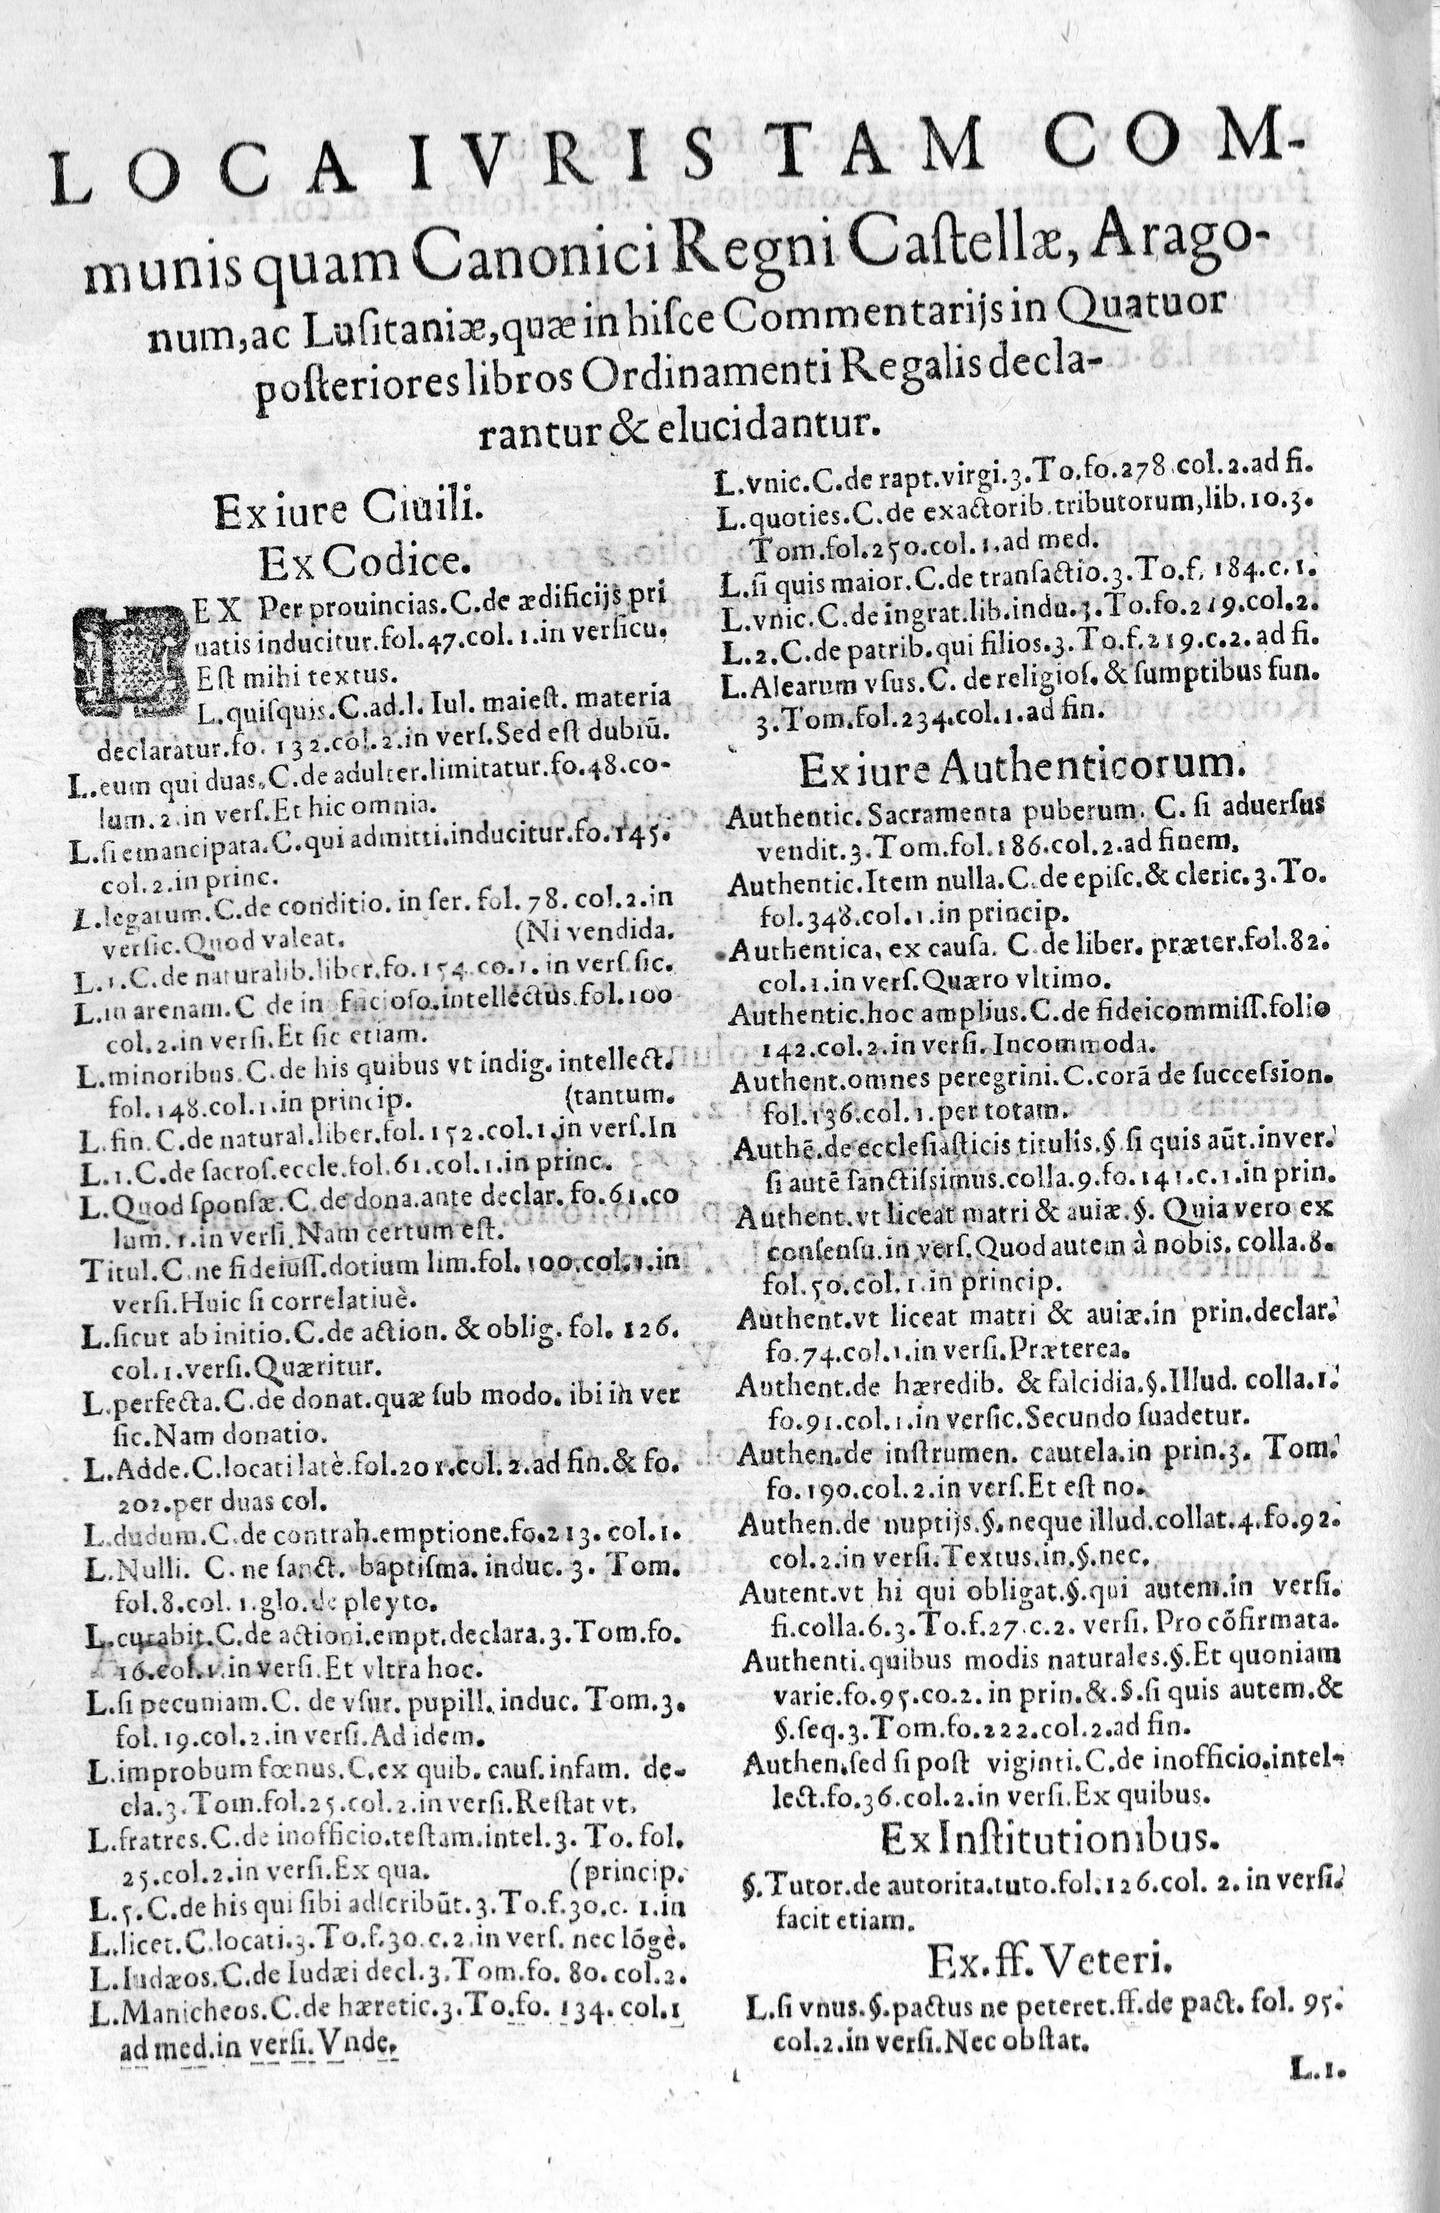 LOCA IVRIS TAM COM-
munis quam Canonici Regni Caſtellæ, Arago-
num, ac Luſitaniæ, quæ in hiſce Commentarijs in Quatuor
poſteriores libros Ordinamenti Regalis decla-
rantur & elucidantur.
Ex iure Ciuili.
Ex Codice.
LEX Per prouincias.C.de ædificijs pri
uatis inducitur.fol.47.col.1.in verſicu.
Eſt mihi textus.
L.quiſquis.C.ad.l.Iul.maieſt. materia
declaratur.fo.132.col.2.in verſ.Sed eſt dubiũ.
L.eum qui duas.C.de adulter.limitatur.fo.48.co-
lum.2.in verſ.Et hic omnia.
L.ſi emancipata.C.qui admitti.inducitur.fo.145.
col.2.in princ.
L.legatum.C.de conditio.in ſer.fol.78.col.2.in
verſic.Quod valeat. (Ni vendida.
L.1.C.de naturalib.liber.fo.154.co.1.in verſ.ſic.
L.in arenam.C de in ſucioſo.intellectus.fol.100
col.2.in verſi.Et ſic etiam.
L.minoribus.C.de his quibus vt indig. intellect.
fol.148.col.1.in princip. (tantum.
L.fin.C.de natural.liber.fol.152.col.1.in verſ.In
L.1.C.de ſacroſ.eccle.fol.61.col.1.in princ.
L.Quod ſponſæ.C.de dona.ante declar.fo.61.co
lum.1.in verſi.Nam certum eſt.
Titul.C.ne fideiuſſ.dotium lim.fol.100.col.1.in
verſi.Huic ſi correlatiuè.
L.ſicut ab initio.C.de action. & oblig.fol. 126.
col.1.verſi.Quæritur.
L.perfecta.C.de donat.quæ ſub modo. ibi in ver
ſic.Nam donatio.
L.Adde.C.locati latè.fol.201.col.2.ad fin.& fo.
202.per duas col.
L.dudum.C.de contrah.emptione.fo.213.col.1.
L.Nulli. C. ne ſanct. baptiſma. induc. 3. Tom.
fol.8.col. 1.glo.de pleyto.
L.curabit.C.de actioni.empt.declara.3.Tom.fo.
16.col.1.in verſi.Et vltra hoc.
L.ſi pecuniam.C. de vſur. pupill. induc. Tom.3.
fol.19.col.2.in verſi.Ad idem.
L.improbum fœnus.C.ex quib. cauſ.infam. de-
cla.3.Tom.fol.25.col.2.in verſi.Reſtat vt.
L.fratres.C.de inofficio.teſtam.intel.3. To. fol.
25.col.2.in verſi.Ex qua. (princip.
L.5.C.de his qui ſibi adſcribũt.3.To.f.30.c. 1.in
L.licet.C.locati.3.To.f.30.c.2.in verſ. nec lõgè.
L.Iudæos.C.de Iudæi decl.3.Tom.fo. 80. col.2.
L.Manicheos.C.de hæretic.3.To.fo. 134. col.1
ad med.in verſi. Vnde.
L.vnic.C.de rapt.virgi.3.To.fo.278.col.2.ad fi.
L.quoties.C.de exactorib.tributorum,lib.10.3.
Tom.fol.250.col.1.ad med.
L.ſi quis maior.C.de tranſactio.3.To.f.184.c.1.
L.vnic.C.de ingrat.lib.indu.3.To.fo.219.col.2.
L.2.C.de patrib.qui filios.3.To.f.219.c.2.ad fi.
L.Alearum vſus.C. de religioſ.& ſumptibus fun.
3.Tom.fol.234.col.1.ad fin.
Ex iure Authenticorum.
Authentic. Sacramenta puberum. C. ſi aduerſus
vendit.3.Tom.fol.186.col.2.ad finem.
Authentic.Item nulla.C.de epiſc.& cleric.3.To.
fol.348.col.1.in princip.
Authentica, ex cauſa. C.de liber. præter.fol.82.
col.1.in verſ.Quæro vltimo.
Authentic.hoc amplius.C.de fideicommiſſ.folio
142.col.2.in verſi.Incommoda.
Authent.omnes peregrini.C.corã de ſucceſsion.
fol.136.col.1.per totam.
Authẽ.de eccleſiaſticis titulis.§.ſi quis aũt.inver.
ſi autẽ ſanctiſsimus.colla.9.fo.141.c.1.in prin.
Authent.vt liceat matri & auiæ.§. Quia vero ex
conſenſu.in verſ.Quod autem à nobis. colla.8.
fol.50.col.1.in princip.
Authent.vt liceat matri & auiæ.in prin.declar.
fo.74.col.1.in verſi.Præterea.
Authent.de hæredib. & falcidia.§.Illud. colla.1.
fo.91.col.1.in verſic.Secundo ſuadetur.
Authen.de inſtrumen. cautela.in prin.3. Tom.
fo.190.col.2.in verſ.Et eſt no.
Authen.de nuptijs.§.neque illud.collat.4.fo.92.
col.2.in verſi.Textus.in.§.nec.
Autent.vt hi qui obligat.§.qui autem.in verſi.
ſi.colla.6.3.To.f.27.c.2. verſi. Pro cõfirmata.
Authenti.quibus modis naturales.§.Et quoniam
varie.fo.95.co.2. in prin.&.§.ſi quis autem.&
§.ſeq.3.Tom.fo.222.col.2.ad fin.
Authen.ſed ſi poſt viginti.C.de inofficio.intel-
lect.fo.36.col.2.in verſi.Ex quibus.
Ex Inſtitutionibus.
§.Tutor.de autorita.tuto.fol.126.col. 2. in verſi.
facit etiam.
Ex.ff. Veteri.
L.ſi vnus.§.pactus ne peteret.ff.de pact. fol. 95.
col.2.in verſi.Nec obſtat.
L.1.